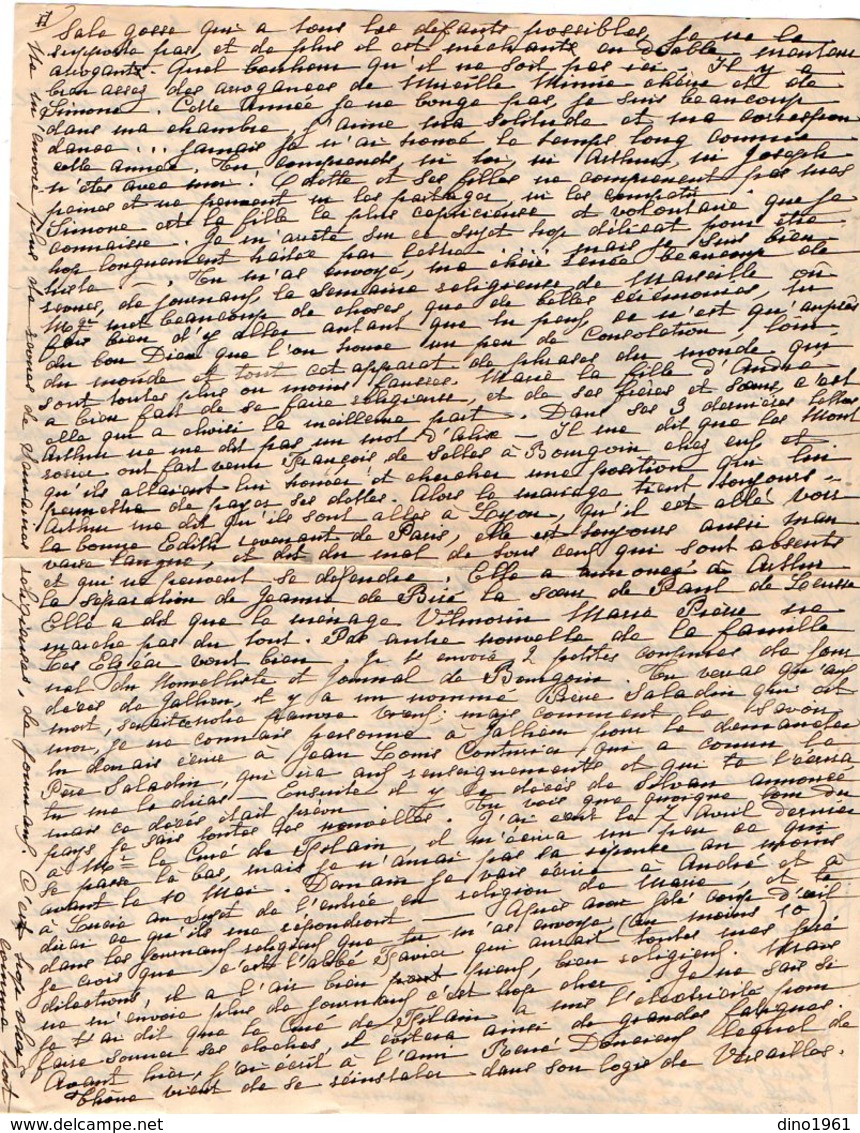 II
Sale gosse qui a tous les défauts possibles, je ne le
supporte pas, et de plus il est méchant en diable menteur
arrogant. Quel bonheur qu'il ne soit pas ici. Il y a
bien assez des arrogances de Mireille Minnie chérie et de
Simone. Cette Année je ne bouge pas, je suis beaucoup
dans ma chambre, j'aime ma solitude et ma correspon
dance... Jamais je n'ai trouvé le temps long comme
cette année. Tu comprends, ni toi, ni Arthur, ni Joseph
n'êtes avec moi! Odette et ses filles ne comprennent pas mes
peines et ne peuvent ni les partager, ni les compatir
Simone est la fille la plus capricieuse et volontaire que je
connaisse. Je m'arrête sur ce sujet trop délicat pour être
trop longuement traité par lettre... mais je suis bien
triste —. Tu m'as envoyé, ma chère beaucoup de
revues, de journaux, la semaine religieuse de Marseille où
Mgr met beaucoup de choses, que de belles cérémonies, tu
fais bien d'y aller autant que tu peux, ce n'est qu'auprès
du bon Dieu que l'on trouve un peu de Consolation, loin
du monde et tout cet apparat de phrases du monde qui
sont toutes plus ou moins fausses. Marie la fille d'André
a bien fait de se faire religieuse, et de ses frères et sœurs, c'est
elle qui a choisi la meilleure part. Dans ses 3 dernières lettres
Arthur ne me dit pas un mot d'Alix — Il me dit que les Mont
ont fait venir François de Selles à Bourgoin chez eux et
qu'ils allaient lui trouver et chercher une position qui lui
permettra de payer ses dettes. Alors le mariage tient toujours —
Arthur me dit qu'ils sont allés à Lyon, qu'il est allé voir
la bonne Edith revenant de Paris, elle est toujours aussi mau
vaise langue, et dit du mal de tous ceux qui sont absents
et qui ne peuvent se défendre. Elle a annoncé à Arthur
la séparation de Jeanne de la sœur de Paul de Leusse
Elle a dit que le ménage Vilmorin Marie Pierre ne
marche pas du tout. Pas autre nouvelle de la famille
Les Elzéar vont bien. Je t'envoie 2 petites coupures de jour
nal du Nouvelliste et Journal de Bourgoin. Tu verras qu'aux
décès de Jallieu, il y a un nommé Père Saladin qui est
mort, serait-ce notre pauvre vieux; mais comment le savoir
moi, je ne connais personne à Jallieu pour le demander
tu devrais écrire à Jean Louis Couturier, qui a connu le
Père Saladin, qui ira aux renseignements et qui te l'écrira
tu me le diras — Ensuite il y a décès de Silvan annoncé
mais ce décès était prévu. Tu vois que quoique loin du
pays je sais toutes les nouvelles. J'ai écrit le 7 Avril dernier
à Mr le Curé de il m'écrira un peu ce qui
se passe là bas, mais je n'aurai pas la réponse au moins
avant le 10 Mai. Demain je vais écrire à André et à
à Lucie au sujet de l'entrée en religion de Marie, et te
dirai ce qu'ils me répondront — Après avoir jeté coup d'œil
dans les journaux religieux que tu m'as envoyé (au moins 10)
je crois que c'est l'abbé qui aurait toutes mes pré
dilections, il a l'air bien pieux, bien religieux. Mais
ne m'envoie plus de journaux c'est trop cher. Je ne sais si
je t'ai dit que le Curé de a mis l'électricité pour
faire sonner ses cloches, il évitera ainsi de grandes fatigues.
Avant hier, j'ai écrit à l'ami René lequel de
vient de se réinstaller dans son logis de Versailles.
Ne m'envoie plus de revues de Semaines religieuses, de journaux. C'est trop cher
comme port
dino1961